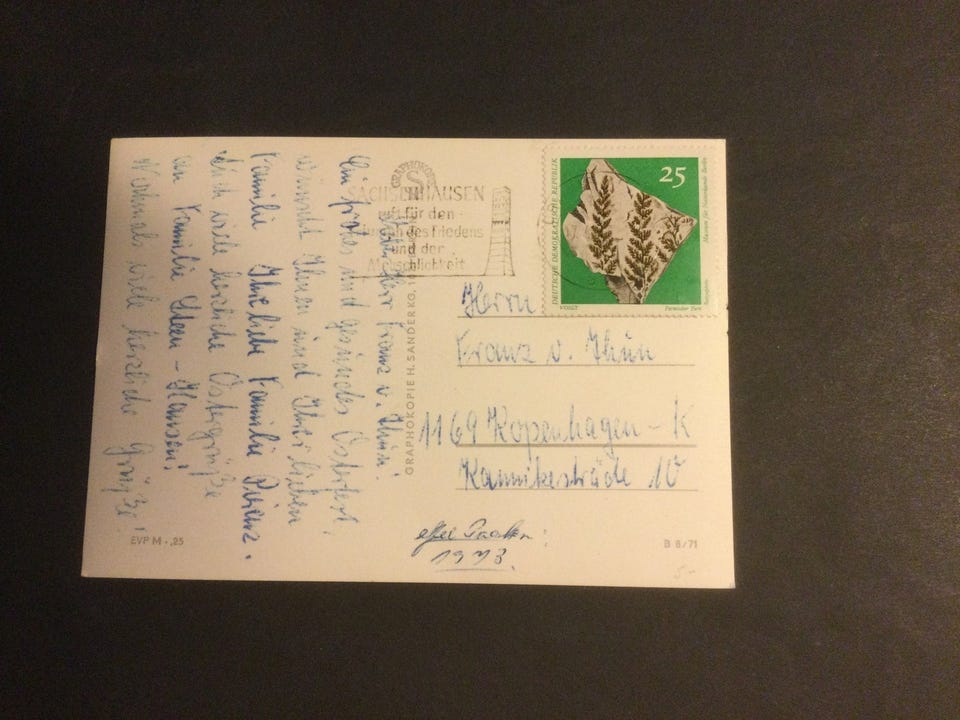 Lieber Herr Franz v. Thün!
Ein frohes und gesundes Osterfest
wünscht Ihnen und Ihrer lieben
Familie Ihre liebe Familie
Auch viele herzliche Ostergrüße
an Familie Steen - Hansen!
Nochmal viele herzliche Grüße!
EVP M -,25
GRAPHOKOPIE H. SANDER KG, 10
GRAPHOKOPIE
SACHSENHAUSEN
ruft für den
des Friedens
und der
Menschlichkeit
DEUTSCHE DEMOKRATISCHE REPUBLIK
25
Museum für Naturkunde Berlin
VOIGT
Permischer Farn
Herrn
Franz v. Thün
1169 Kopenhagen - K
Kannikestræde 10
1973.
B 8/71
5-